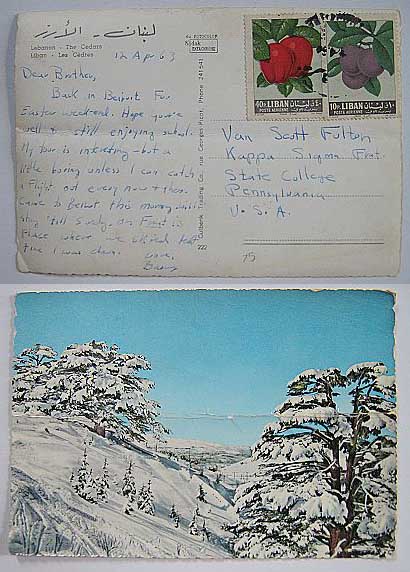 لبنان - الأرز
Lebanon - The Cedars
Liban - Les Cèdres
Kodak
EKTACHROME
12 Apr 63
Dear Brother,
Back in Beirut For
Easter weekend. Hope you're
well & still enjoying school.
My tour is interesting - but a
little boring unless I can catch
a flight out every now & then.
Came to Beirut this morning
stay 'till Sunday. Our Flight is
Place where we last
time I was down.
Love,
Gulbenk Trading Co. rue Georges-Picot, Phone 241541
222
40 P. LIBAN لبنان ٤٠
POSTE AERIENNE
10 P. LIBAN لبنان ١٠
POSTE AERIENNE
Van Scott Fulton
Kappa Sigma Frat.
State College
Pennsylvania
U.S.A.